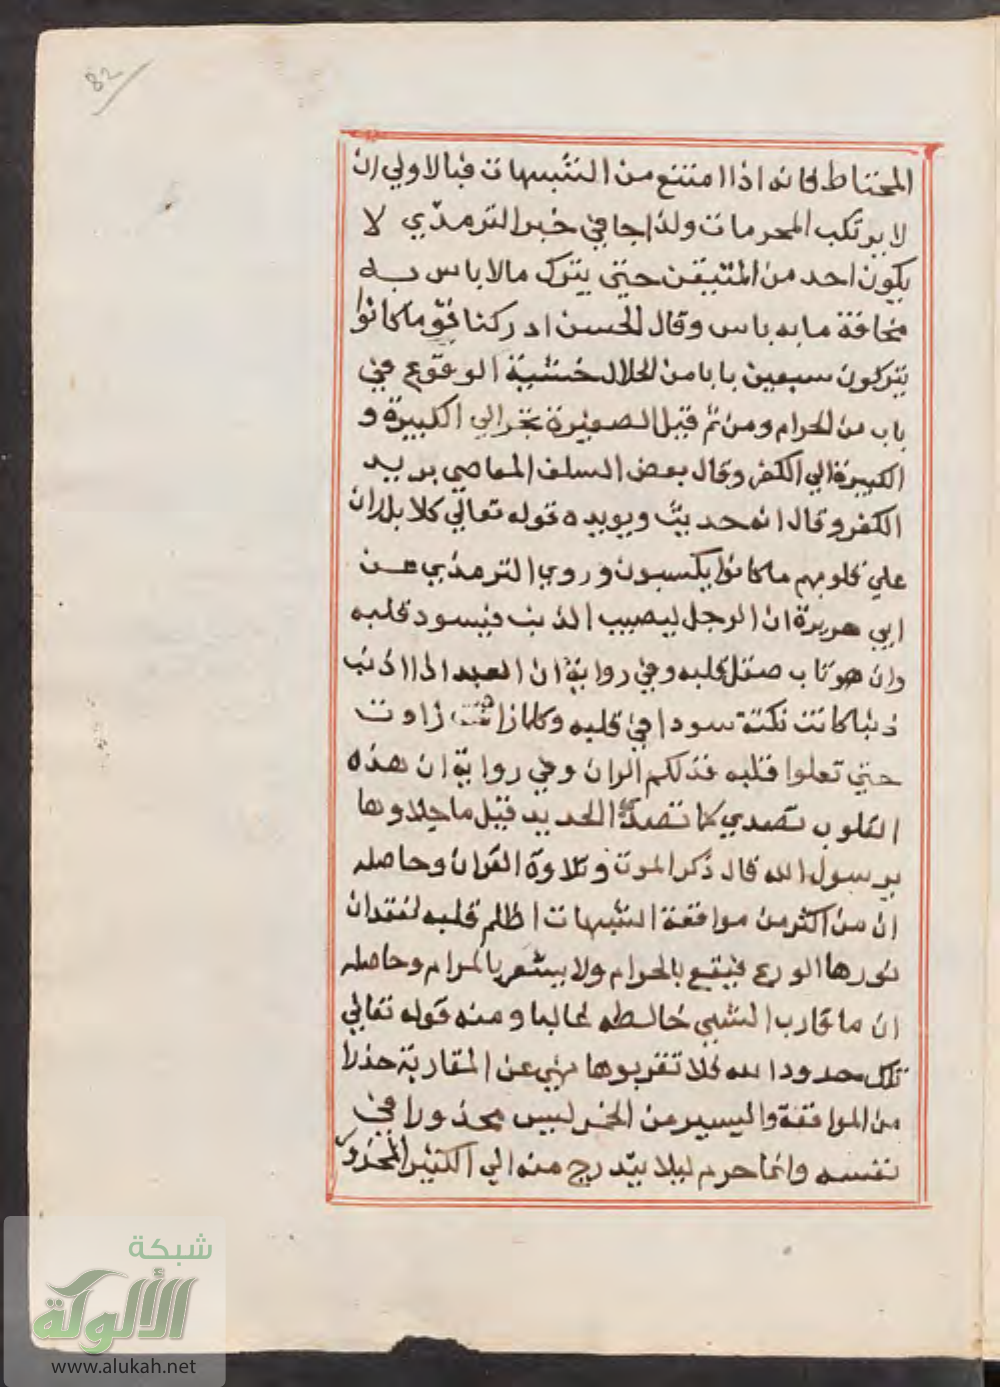 82
المحتاط فانه اذا امتنع من الشبهات فبالاولي ان
لا يرتكب المحرمات ولذا جا في خبر الترمذي لا
يكون احد من المتيقن حتي يترك مالا باس به
مخافة مابه باس وقال الحسن ادركنا قوما كانوا
يتركون سبعين بابا من الحلال خشية الوقوع في
باب من الحرام ومن ثم قيل الصغيرة تجر الي الكبيرة و
الكبيرة الي الكفر وقال بعض السلف المعاصي بريد
الكفر وقال انه حديث ويويده قوله تعالي كلا بل ران
علي قلوبهم ما كانوا يكسبون وروي الترمذي عن
ابي هريرة ان الرجل ليصيب الذنب فيسود قلبه
وان هو تاب صقل قلبه وفي رواية ان العبد اذا اذنب
ذنبا كانت نكتة سودا في قلبه وكلما زاد زادت
حتي تعلوا قلبه فذلكم الران وفي رواية ان هذه
القلوب تصدي كما تصدأ الحديد قيل ما جلاوها
يرسول الله قال ذكر الموت وتلاوة القران وحاصله
ان من اكثر من موافقة الشبهات اظلم قلبه لفقدان
نورها الورع فيقع بالحرام ولا يشعر بالحرام وحاصله
ان ما قارب الشيي خالطه غالبا ومنه قوله تعالي
تلك حدود الله فلا تقربوها نهي عن المقاربة حذرا
من الموافقة واليسير من الخمر ليس محذورا في
نفسه وانما حرم ليلا يتدرج منه الي الكثير المحذور
شبكة
الألوكة
www.alukah.net